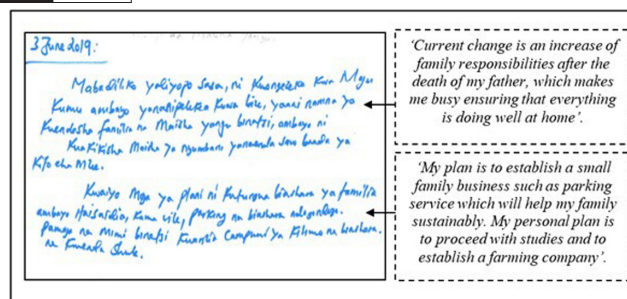 3 June 2019:
Mabadiliko yaliyopo sasa, ni Kuongezeka Kwa
ambayo Kuwa yaani namna ya
Kuendesha familia na Maisha yangu binafsi, ambayo ni
Kuhakikisha Maisha ya nyumbani yanaenda baada ya
Kifo cha
ya plani ni Kutengeneza biashara ya familia
ambayo itaisaidia, Kama vile, parking na biashara
na Mimi binafsi Kuanzisha Campuni ya Kilimo na biashara.
na Kwenda Shule.
'Current change is an increase of
family responsibilities after the
death of my father, which makes
me busy ensuring that everything
is doing well at home'.
'My plan is to establish a small
family business such as parking
service which will help my family
sustainably. My personal plan is
to proceed with studies and to
establish a farming company'.